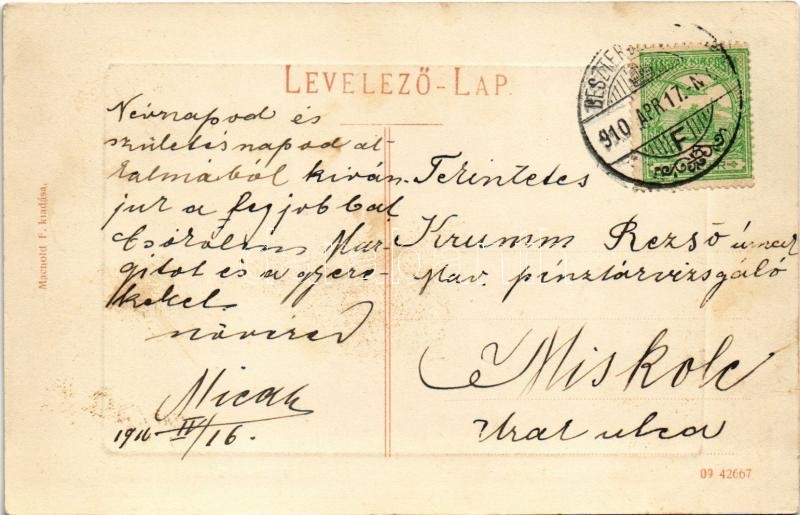 LEVELEZŐ-LAP.
Névnapod és
születésnapod al-
kalmából kíván-
juk a legjobbat
Csókolom Mar-
gitot és a gyere-
keket
növéred
Micak
1910 IV/16.
Tekintetes
Krumm Rezső úrnak
Máv. pénztárvizsgáló
Miskolc
utca
BESZTER
910 APR 17. N
F
Macnold F. kiadása.
09 42667